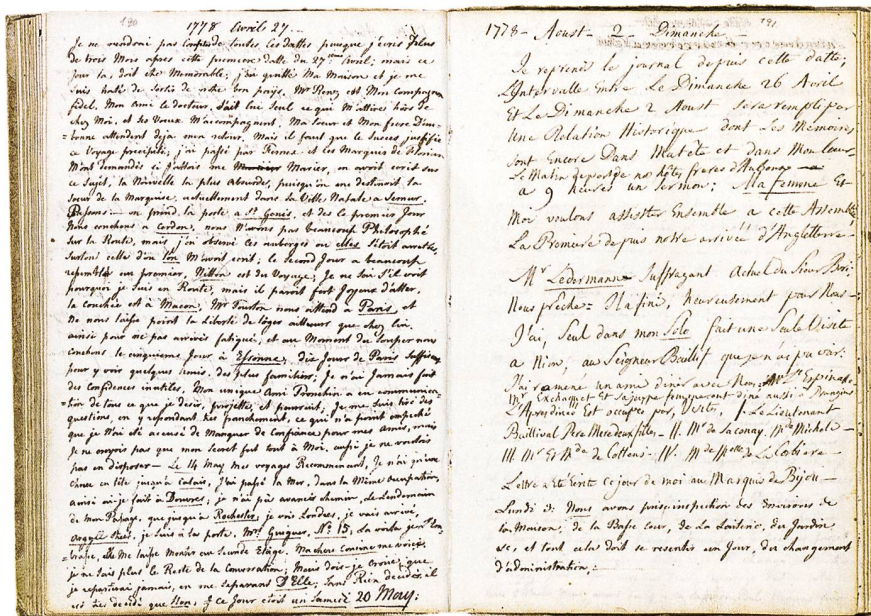 190
1778 Avril 27..
Je ne rendrai pas compte de toutes les dattes puisque j'ecris Plus
de trois Mois apres cette premiere datte du 27me Avril; mais ce
jour la, doit etre Memorable; j'ai quitté Ma Maison et je me
suis haté de sortir de notre bon païs. Mr Renz est Mon Compagnon
fidel. Mon Ami le docteur, sait lui seul ce qui M'attire hors de
chez Moi, et ses Voeux M'accompagnent; Ma Soeur et Mon frere
attendent deja mon retour. Mais il faut que le Succes justifie
ce Voyage precipité; j'ai passé par Fernex et les Marquis de
M'ont demandés si j'allois me Marier, on avoit ecrit sur
ce Sujet, la Nouvelle la plus absurdes, puisqu'on me destinoit la
soeur de la Marquise, actuellement dans la Ville Natale a Semur.
on prend la poste a St Genis, et des le premier Jour
Nous couchons a Cerdon, nous N'avons pas beaucoup Philosophé
Sur la Route, mais j'ai observé les auberges ou elles s'etoit arretée,
Surtout celle d'ou l'on M'avoit ecrit; le Second Jour a beaucoup
resemblé au premier, est du Voyage; Je ne sai S'il voit
pourquoi je suis en Route, mais il paroit fort Joyeux d'aller,
la couchée est a Macon, Mr Tourton nous attend a Paris, et
Ne nous laisse point la liberté de loger ailleurs que chez lui,
ainsi pour ne pas arrivés fatigué, et au Moment du Souper nous
couchons le cinquieme Jour a Essonne, dix Jours de Paris Suffisent
pour y voir quelques amis, des plus familiers; Je n'ai Jamais fait
des Confidences inutiles, Mon unique Ami Tronchin a eu communica-
tion de tous ce que je desire, projette, et poursuit, Je me suis tiré des
questions, en y repondant sans epanchement, ce qui n'a point empeché
que je N'ai eté accusé de Manquer de Confiance pour mes amis, mais
Je ne croyois pas que mon Secret fut tout a Moi, aussi je ne voulois
pas en disposer — Le 14 May mes voyages Recommencent, Je n'ai qu'une
chose en tête jusqu'a Calais, J'ai passé la Mer, dans la Même occupation,
ainsi ai-je fait a Douvres; je n'ai pû avancer chemin, le Lendemain
de mon Passage, que jusqu'a Rochester, je vois Londres, je vais arriver,
je suis a la porte. No 15; La voila je l'em-
brasse, elle Me laisse Monter au Second Etage. Ma chere Cousine me voici,
je ne sais plus le Reste de la Conversation; Mais dois-je croire, que
je repartirai jamais, en me separant D'Elle, Sans Rien decider, il
est decidé que Non, & ce Jour etoit un Samedi 20 May;
191
1778 - Aoust - 2 - Dimanche -
Je reprends le journal depuis cette datte;
L'Intervalle Entre Le Dimanche 26 Avril
Et Le Dimanche 2 Aoust sera rempli par
Une Relation Historique dont Les Memoires
sont Encore Dans Ma tête et dans Mon Coeur —
Le Matin nos hôtes freres d'Aubonne
a 9 heures un Sermon; Ma femme Et
Moi voulons assister Ensemble a cette Assemblée
La Premiere depuis notre arrivée d'Angleterre -
Mr Ledermann Suffragant Actuel du Sieur
Nous prêche = Il a fini, heureusement pour Nous —
J'ai, Seul dans mon Solo fait une Seule Visite
a Nion, au Seigneur Baillif que je n'ai pu voir.
J'ai ramené un ame diner avec Moi,
Mr Exchaquet et Sa Juppe fomperent dine aussi a
L'Apresdinée Est occupée par, Visite, I. Le Lieutenant
Baillival Pere Mere deux filles — II. Mr de Laconay. Mr de Michel —
III Mr Et Me de Cottens — IV. Mr de de La Cotiere —
Lettre a Eté Ecrite ce jour de moi au Marquis de Bijou —
Lundi 3: Nous avons pris inspection des Environs de
la Maison, de la Basse Cour, de La Laiterie, du Jardin
&c, et tout cela doit se resentir un Jour, du changement
d'administration. -